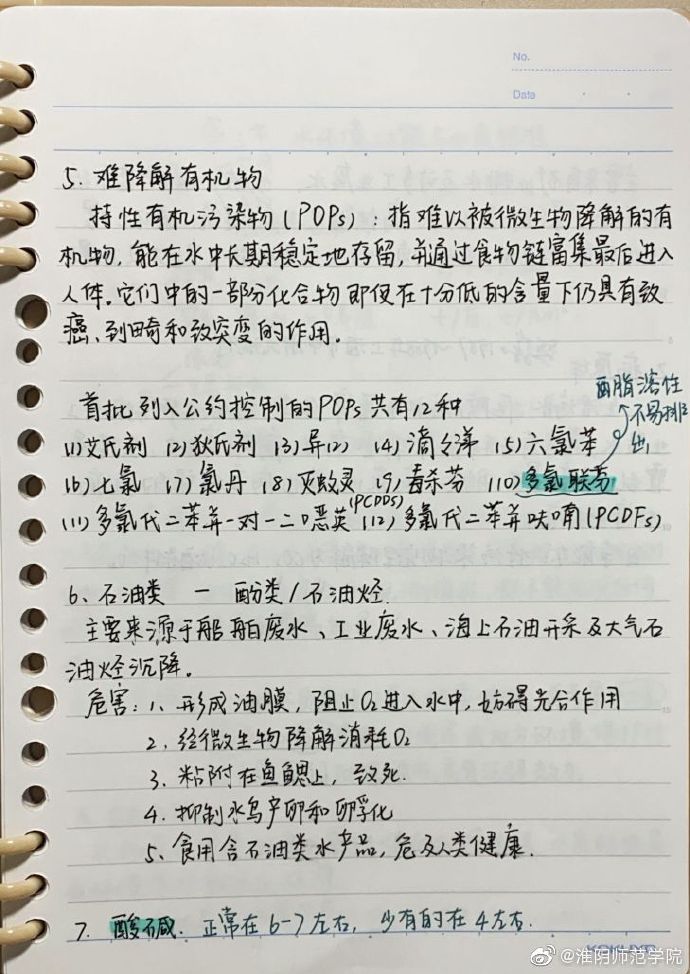 No.
Data
5. 难降解有机物
持性有机污染物(POPs)：指难以被微生物降解的有
机物，能在水中长期稳定地存留，并通过食物链富集最后进入
人体。它们中的一部分化合物即使在十分低的含量下仍具有致
癌、到畸和致突变的作用。
首批列入公约控制的POPs共有12种
脂溶性
不易排出
(1)艾氏剂 (2)狄氏剂 (3)异(2) (4)滴 (5)六氯苯
(6)七氯 (7)氯丹 (8)灭蚁灵 (9)毒杀芬 (10)多氯联芬
(11)多氯代二苯并-对-二噁英(PCDDS) (12)多氯代二苯并呋喃(PCDFs)
6、石油类 — 酚类/石油烃
主要来源于船舶废水、工业废水、海上石油开采及大气石
油烃沉降。
危害：1、形成油膜，阻止O₂进入水中，妨碍光合作用
2、经微生物降解消耗O₂
3、粘附在鱼鳃上，致死.
4、抑制水鸟产卵和卵孵化
5、食用含石油类水产品，危及人类健康.
7. 酸碱. 正常在6-7左右，少有的在4左右.
KOKUYO
@淮阴师范学院